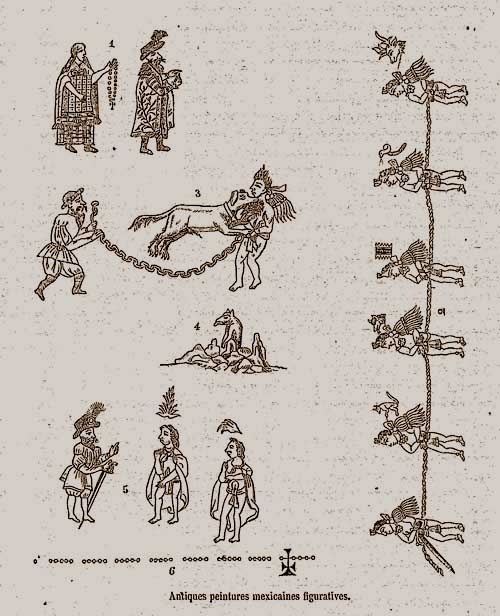 1
3
4
2
5
6
Antiques peintures mexicaines figuratives.